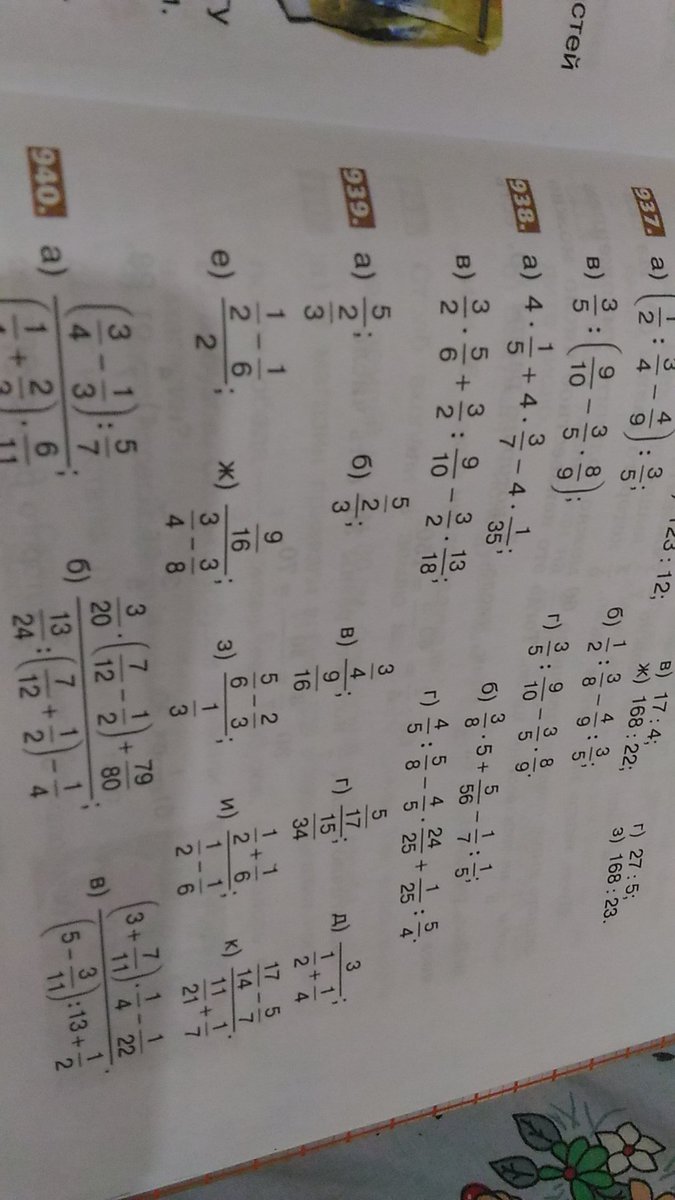 стей
ту
123 : 12; в) 17 : 4; г) 27 : 5;
ж) 168 : 22; з) 168 : 23.
937. а) (1/2 : 3/4 − 4/9) : 3/5; б) 1/2 : 3/8 − 4/9 : 3/5;
в) 3/5 : (9/10 − 3/5 · 8/9); г) 3/5 : 9/10 − 3/5 · 8/9.
938. а) 4 · 1/5 + 4 · 3/7 − 4 · 1/35; б) 3/8 · 5 + 5/56 − 1/7 : 1/5;
в) 3/2 · 5/6 + 3/2 : 9/10 − 3/2 · 13/18; г) 4/5 : 5/8 − 4/5 · 24/25 + 1/25 : 5/4.
939. а) (5/2)/3; б) 5/(2/3); в) (3/4)/(9/16); г) 5/(17/15)/34; д) 3/(1/2 + 1/4);
е) (1/2 − 1/6)/2; ж) (9/16)/(3/4 − 3/8); з) (5/6 − 2/3)/(1/3); и) (1/2 + 1/6)/(1/2 − 1/6); к) (17/14 − 5/7)/(11/21 + 1/7).
940. а) (3/4 − 1/3) : 5/7; б) (3/20 · (7/12 − 1/2) + 79/80)/(13/24 : (7/12 + 1/2) − 1/4); в) ((3 + 7/11) · 1/4 − 1/22)/((5 − 3/11) : 13 + 1/2).